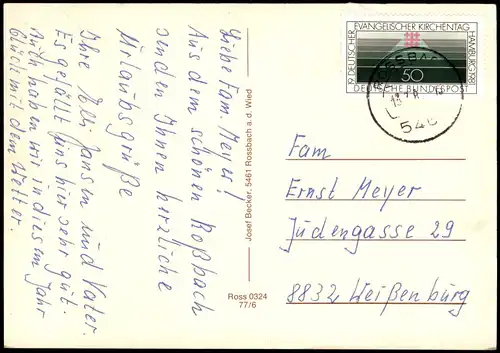 Liebe Fam. Meyer!
Aus dem schönen Roßbach
senden Ihnen herzliche
Urlaubsgrüße
Ihre Elli Jansen und Vater.
Es gefällt uns hier sehr gut.
Auch haben wir in diesem Jahr
Glück mit dem Wetter.
Josef Becker, 5461 Rossbach a. d. Wied
Ross 0324
77/6
19. DEUTSCHER EVANGELISCHER KIRCHENTAG HAMBURG 1981
50
DEUTSCHE BUNDESPOST
ROSSBACH
546
Fam
Ernst Meyer
Judengasse 29
8832 Weißenburg